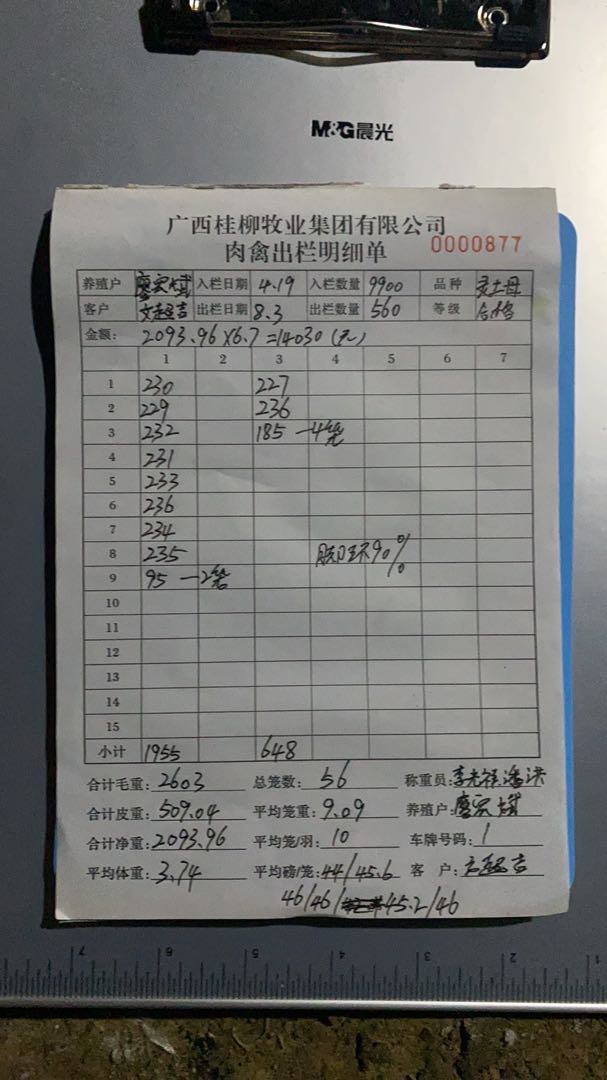 M&G晨光
广西桂柳牧业集团有限公司
肉禽出栏明细单 0000877
养殖户 廖宏斌 入栏日期 4.19 入栏数量 9900 品种 土母
客户 出栏日期 8.3 出栏数量 560 等级 合格
金额: 2093.96×6.7=14030(元)
1 2 3 4 5 6 7
1 230 227
2 229 236
3 232 185 —4笼
4 231
5 233
6 236
7 234
8 235 90%
9 95 —2笼
10
11
12
13
14
15
小计 1955 648
合计毛重: 2603 总笼数: 56 称重员:
合计皮重: 509.04 平均笼重: 9.09 养殖户: 廖宏斌
合计净重: 2093.96 平均笼/羽: 10 车牌号码: 1
平均体重: 3.74 平均磅/笼: 44/45.6 客 户:
46/46/45.2/46
7 6 5 4 3 2 1